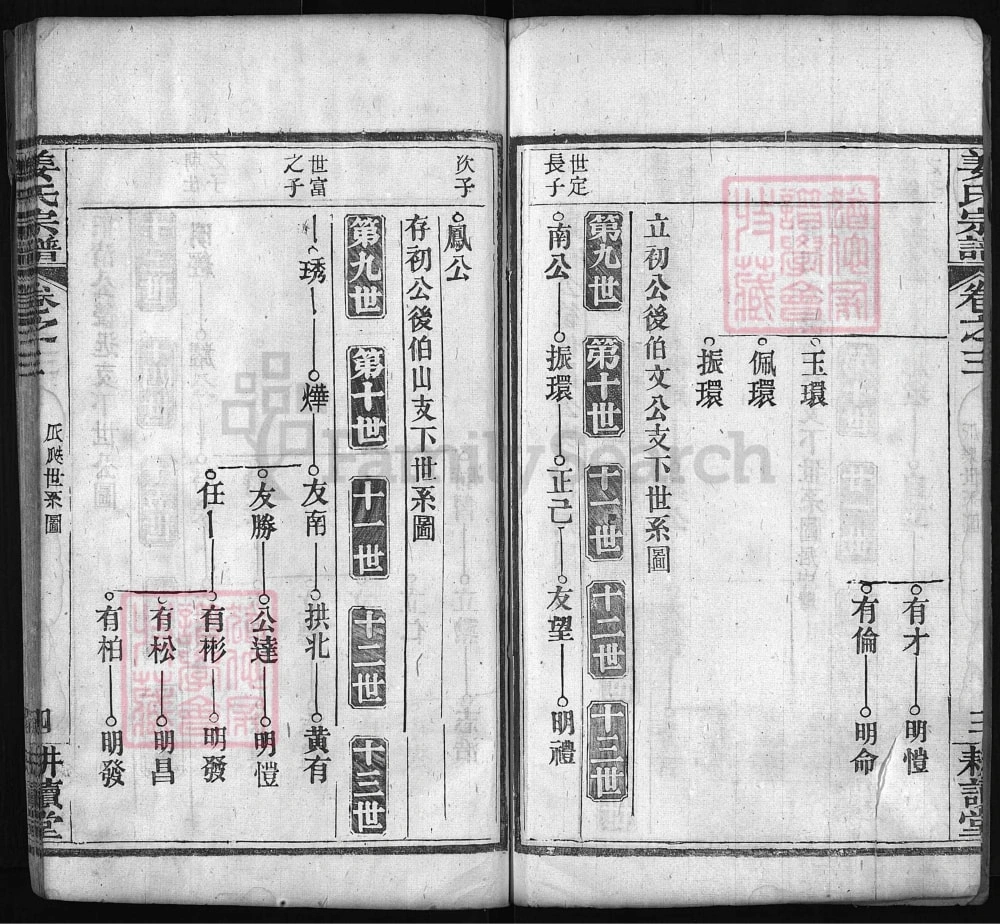 姜氏宗譜 卷之三 三 耕讀堂
有才 明愷
有倫 明命
玉環
佩環
振環
立初公後伯文公支下世系圖
第九世 第十世 十一世 十二世 十三世
世定長子
南公 振環 正己 友望 明禮
次子
鳳公
存初公後伯山支下世系圖
第九世 第十世 十一世 十二世 十三世
世富之子
琇 燁 友南 拱北 黄有
友勝 公達 明愷
任 有彬 明發
有松 明昌
有柏 明發
姜氏宗譜 卷之三 世系圖 四 耕讀堂
FamilySearch